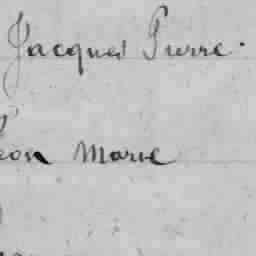 Jacques Pierre.
Léon Marie